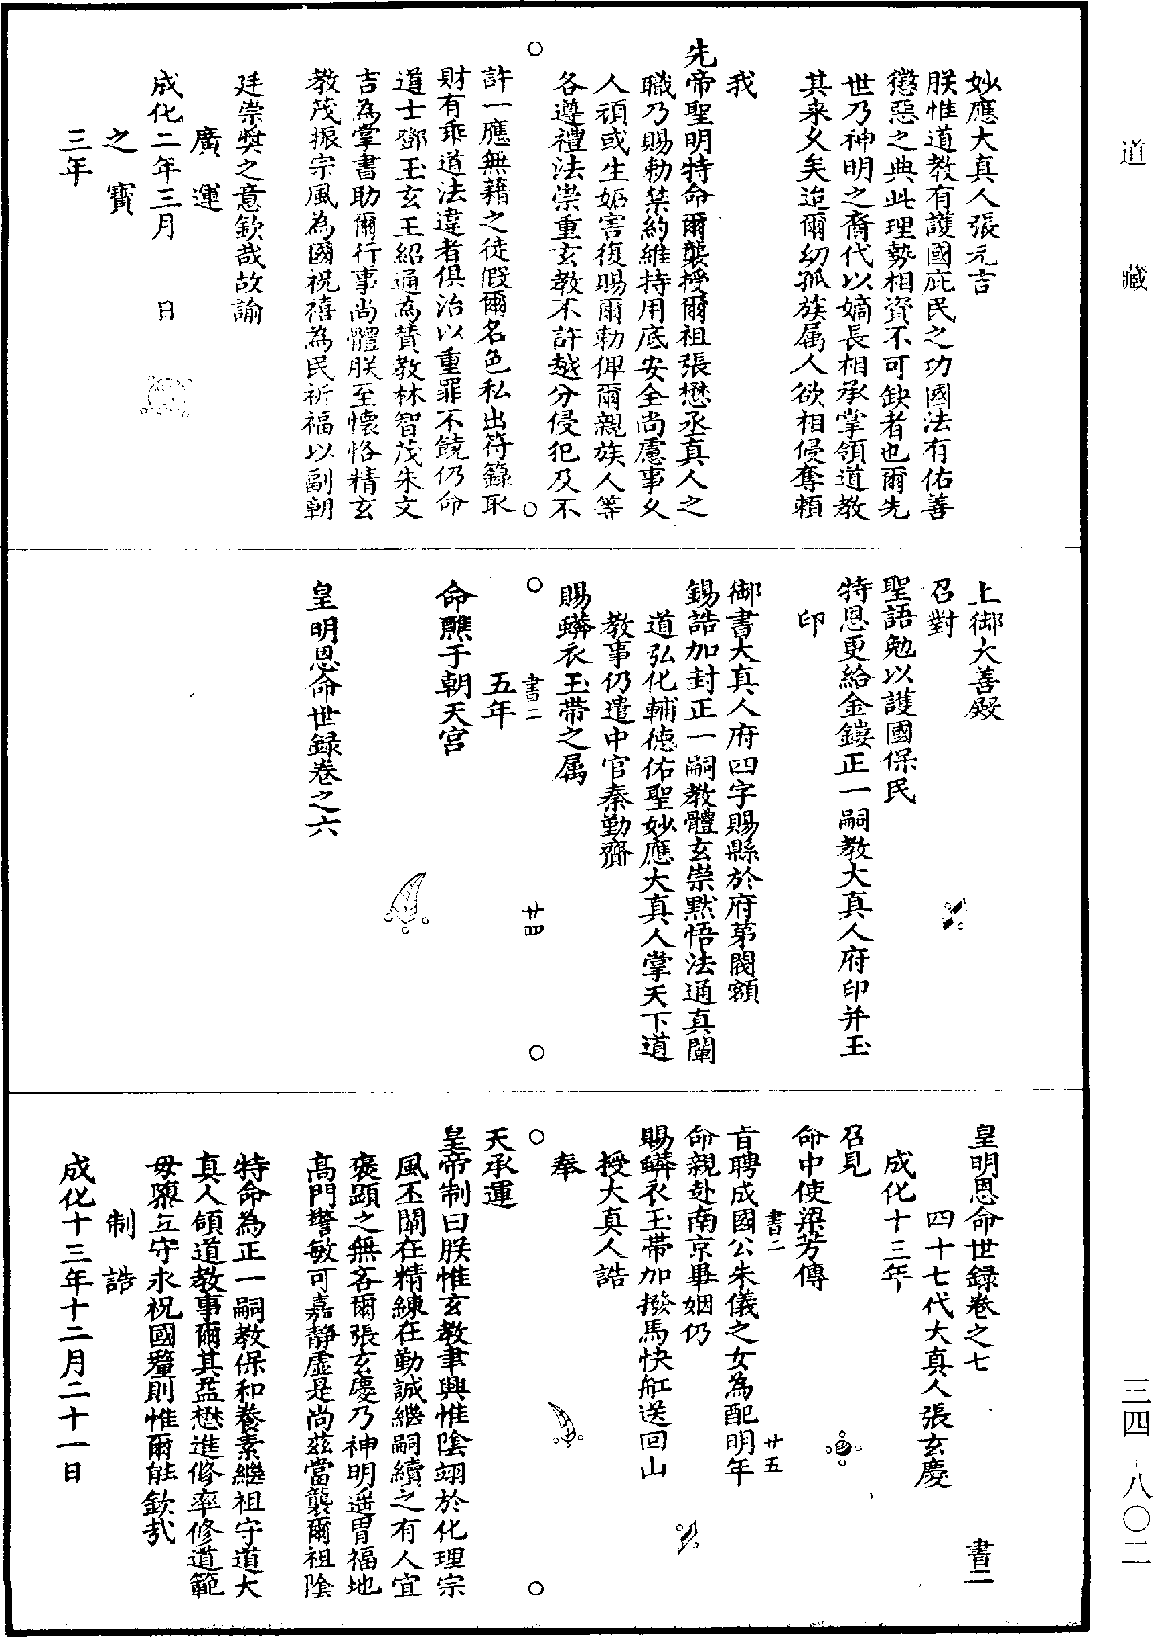 妙應大真人張元吉
朕惟道教有護國庇民之功國法有佑善
懲惡之典此理勢相資不可缺者也爾先
世乃神明之裔代以嫡長相承掌領道教
其來久矣迨爾幼孤族属人欲相侵奪賴
我
先帝聖明特命爾襲授爾祖張懋丞真人之
職乃賜勅禁約維持用底安全尚慮事久
人頑或生妬害復賜爾勅俾爾親族人等
各遵禮法崇重玄教不許越分侵犯及不
許一應無藉之徒假爾名色私出符籙取
財有乖道法違者俱治以重罪不饒仍命
道士鄧玉玄王紹通為賛教林智茂朱文
吉為掌書助爾行事尚體朕至懷恪精玄
教茂振宗風為國祝禧為民祈福以副朝
廷崇獎之意欽哉故諭
廣運
成化二年三月　日
之寶
三年
上御大善殿
召對
聖語勉以護國保民
特恩更給金鏤正一嗣教大真人府印并玉
印
御書大真人府四字賜縣於府第閣額
錫誥加封正一嗣教體玄崇黙悟法通真闡
道弘化輔德佑聖妙應大真人掌天下道
教事仍遣中官秦勤齎
賜蟒衣玉帶之属
書二
廿四
五年
命醮于朝天宮
皇明恩命世録卷之六
皇明恩命世録卷之七
書二
四十七代大真人張玄慶
成化十三年
召見
命中使梁芳傳
書二
廿五
旨聘成國公朱儀之女為配明年
命親赴南京畢姻仍
賜蟒衣玉帶加撥馬快舡送回山
授大真人誥
奉
天承運
皇帝制曰朕惟玄教聿興惟陰翊於化理宗
風丕闡在精練在勤誠繼嗣續之有人宜
褒顕之無吝爾張玄慶乃神明遥胄福地
高門警敏可嘉靜虛是尚兹當襲爾祖陰
特命為正一嗣教保和養素繼祖守道大
真人領道教事爾其益懋進修率修道範
毋隳厥守永祝國釐則惟爾能欽哉
制誥
成化十三年十二月二十一日
道藏
三四-八〇二